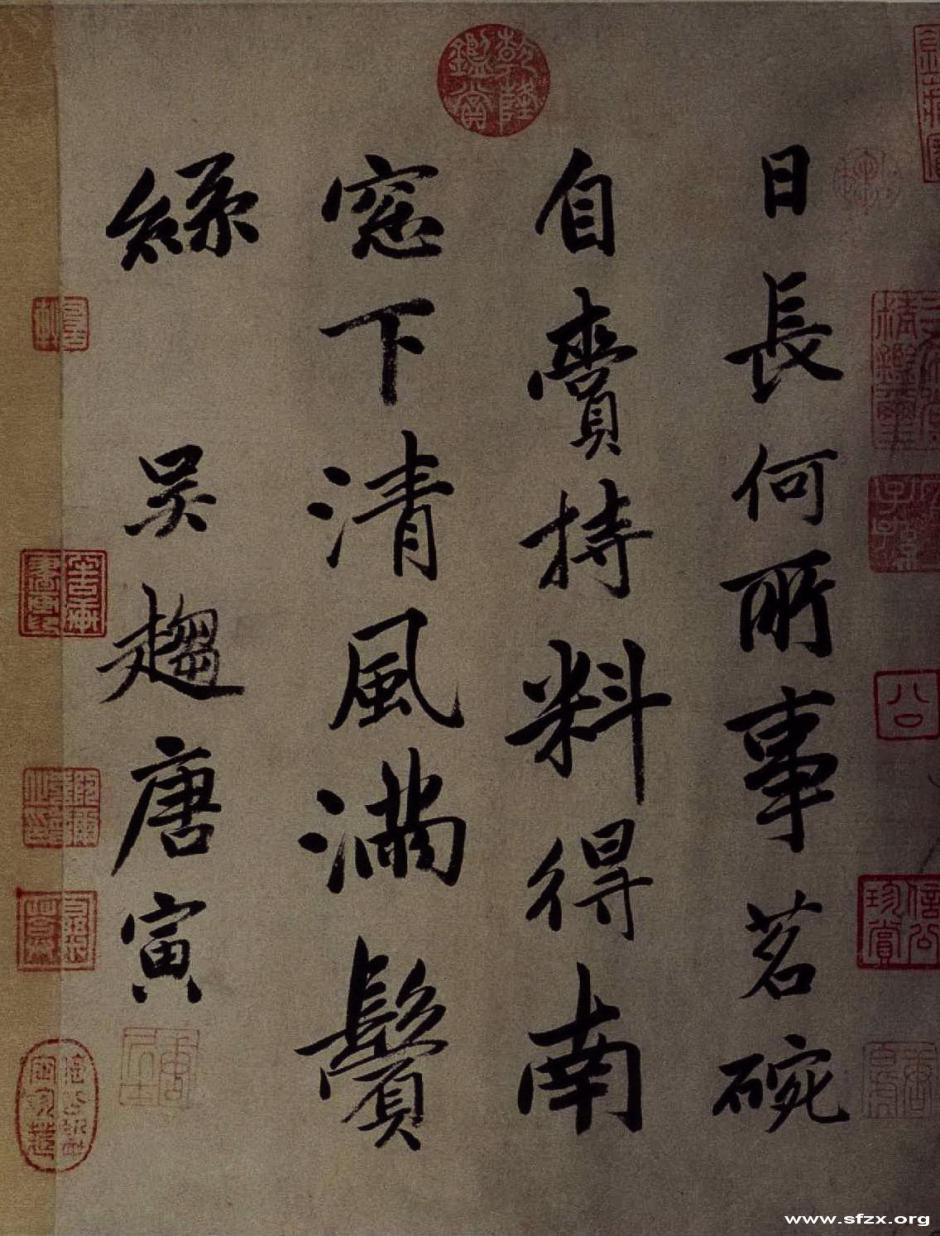 日長何所事茗碗
自賫持料得南
窓下清風滿鬢
絲 吳趨唐寅
乾隆鑑賞
公
信公珍賞
www.sfzx.org